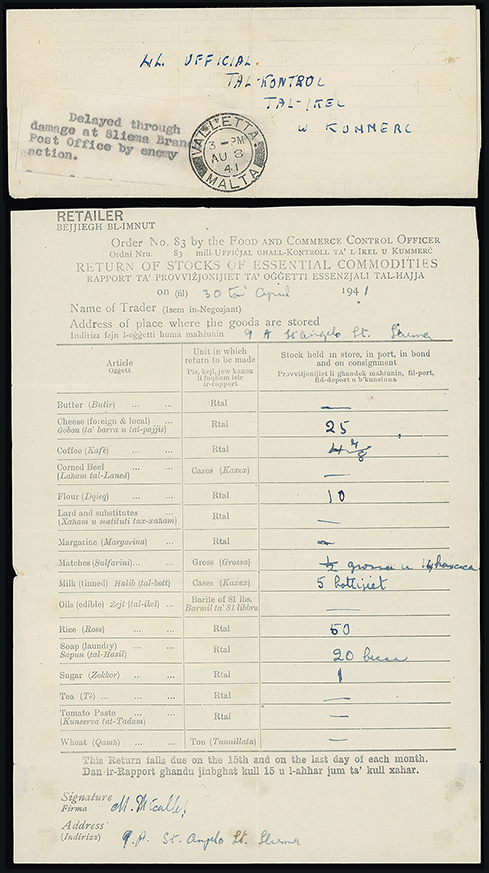 LIL UFFICIAL.
TAL-KONTROL
TAL-IKEL
U KUMMERC
Delayed through
damage at Sliema Branch
Post Office by enemy
action.
VALLETTA
3 - PM
AU 8
41
MALTA
RETAILER
BEJJIEGH BL-IMNUT
Order No. 83 by the FOOD AND COMMERCE CONTROL OFFICER
Ordni Nru. 83 mill-UFFIĊJAL GHALL-KONTROLL TA' L-IKEL U KUMMERĊ
RETURN OF STOCKS OF ESSENTIAL COMMODITIES
RAPPORT TA' PROVVIŻJONIJIET TA' OĠĠETTI ESSENZJALI TAL-ĦAJJA
on (fil) 30 ta' April 1941
Name of Trader (Isem in-Negozjant)
Address of place where the goods are stored
Indirizz fejn l-oġġetti huma maħżunin 9 A St Angelo St. Sliema
Article Unit in which return to be made Stock held in store, in port, in bond and on consignment
Oġġett Piż, kejl, jew kaxex li fuqhom isir ir-rapport Provviżjonijiet li għandek maħżunin, fil-port, fid-depost u b'kunsinna
Butter (Butir) ... ... Rtal —
Cheese (foreign & local) ... Rtal 25
Ġobon (ta' barra u tal-pajjis)
Coffee (Kafè) ... ... Rtal
Corned Beef ... ... Cases (Kaxex) —
(Laħam tal-Landa)
Flour (Dqieq) ... ... Rtal 10
Lard and substitutes ... Rtal —
(Xaħam u sostituti tax-xaħam)
Margarine (Margarina) ... Rtal —
Matches (Sulfarini) ... ... Gross (Grossa) ½ grossa u
Milk (tinned) Ħalib (tal-bott) Cases (Kaxex) 5 bottijiet
Oils (edible) Żejt (tal-ikel) ... Barile of 81 lbs. —
Barmil ta' 81 libbra
Rice (Ross) ... ... Rtal 50
Soap (laundry) ... ... Rtal 20
Sapun (tal-Ħasil)
Sugar (Zokkor) ... ... Rtal 1
Tea (Tè) ... ... ... Rtal —
Tomato Paste ... ... Rtal —
(Kunserva tat-Tadam)
Wheat (Qamħ) ... ... Ton (Tunnillata) —
This Return falls due on the 15th and on the last day of each month.
Dan ir-Rapport għandu jinbgħat kull 15 u l-aħħar jum ta' kull xahar.
Signature
Firma M. Micallef
Address
(Indirizz) 9.A. St. Angelo St. Sliema